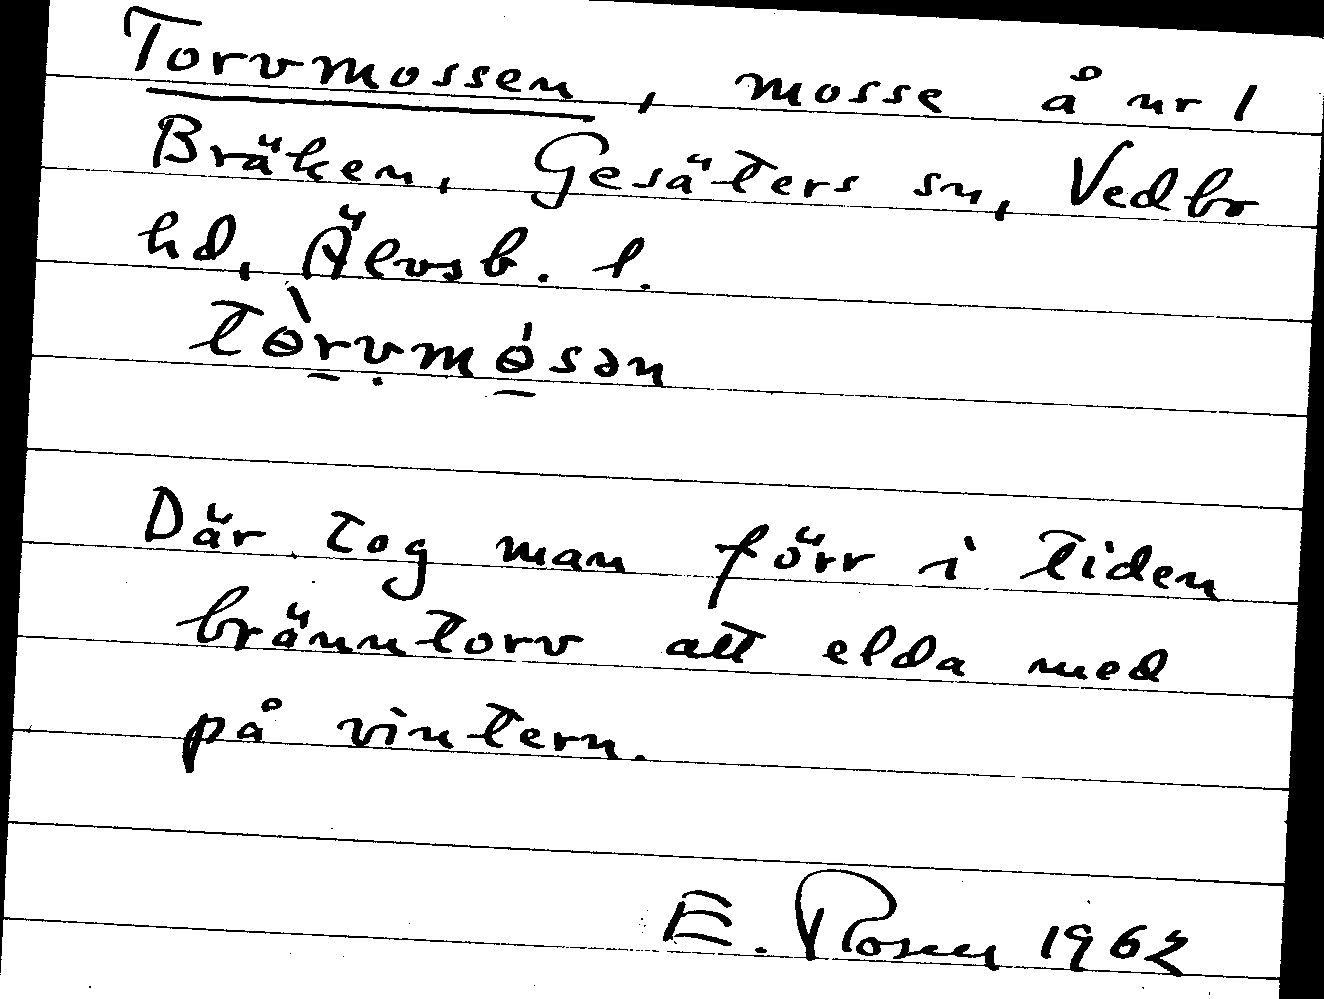 Torvmossen, mosse å nr 1
Bräcken, Gesäters sn, Vedbo
hd, Älvsb. l.
tɵ̀rvmɵ́sən
Där tog man förr i tiden
bränntorv att elda med
på vintern.
E. Rosen 1962